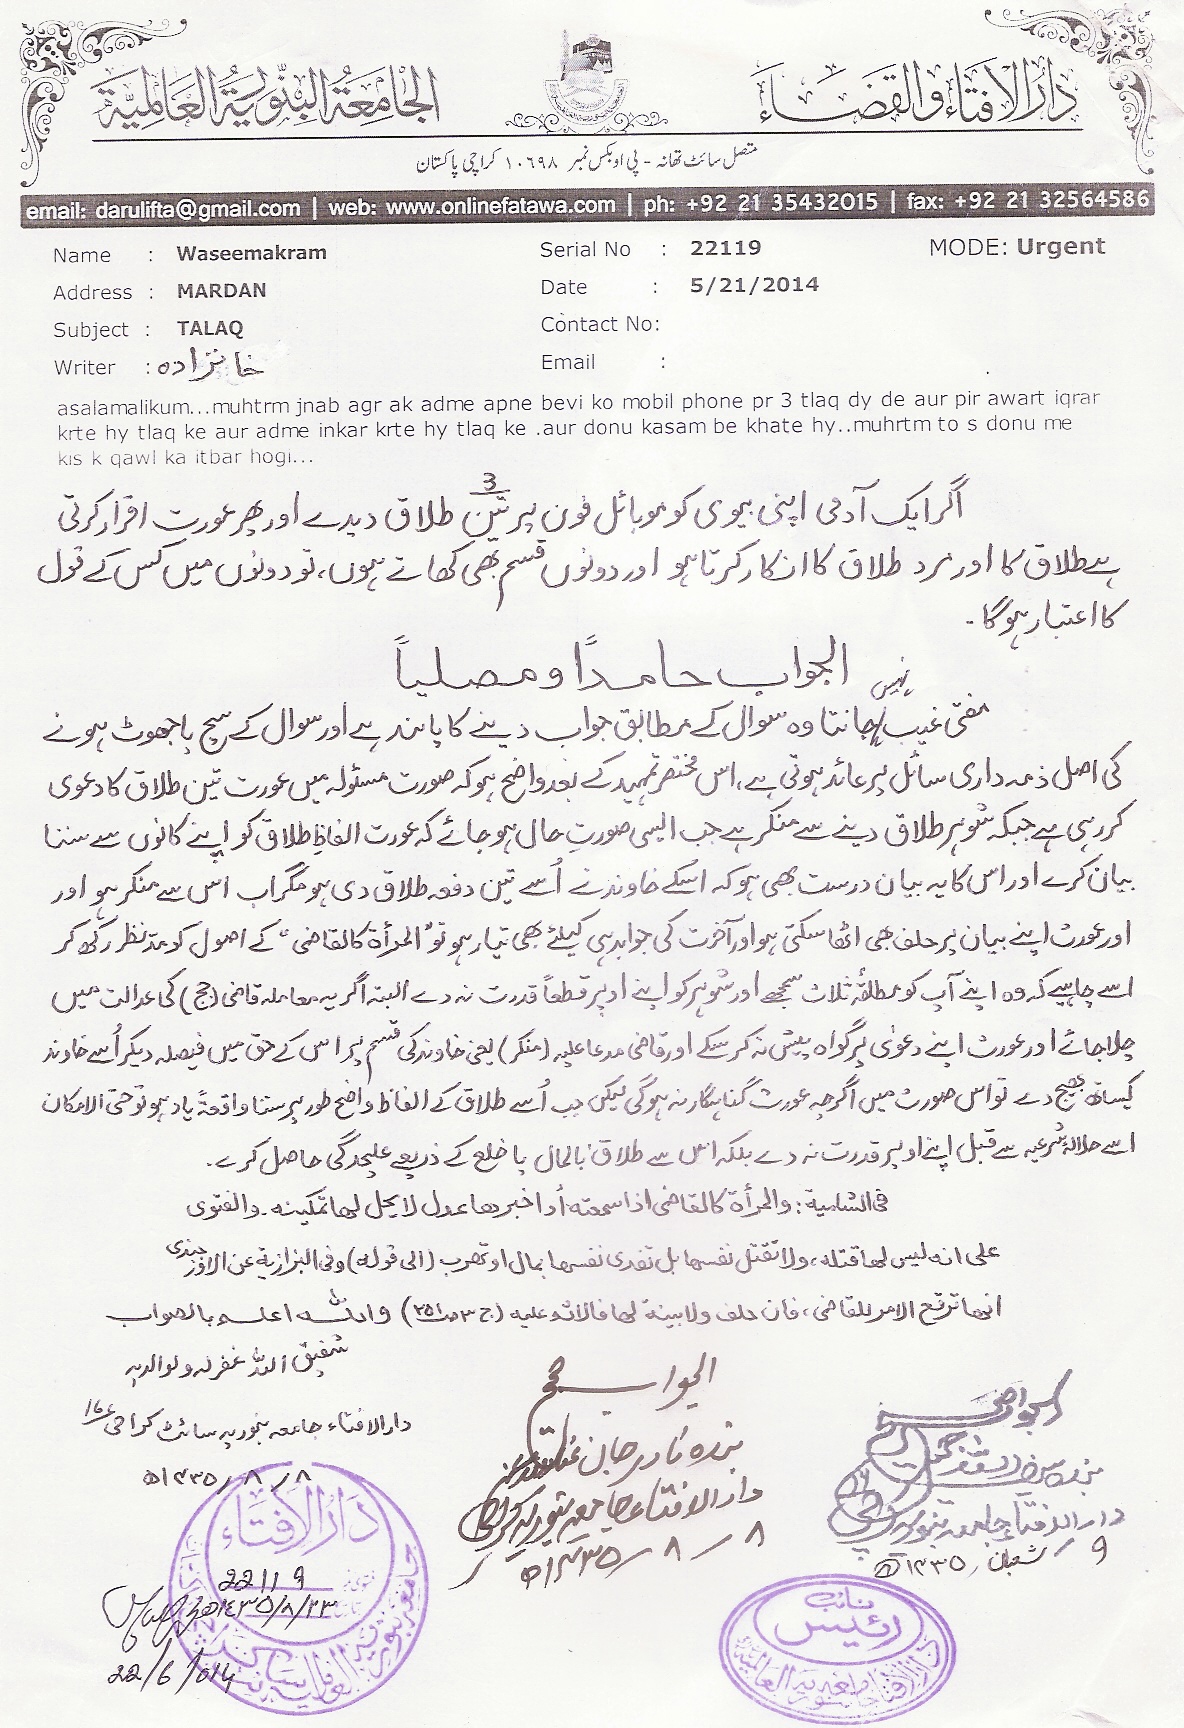 دار الافتاء والقضاء
الجامعة البنورية العالمية
متصل سائٹ تھانہ - پی او بکس نمبر ۱۰۶۹۸ کراچی پاکستان
email: darulifta@gmail.com | web: www.onlinefatawa.com | ph: +92 21 35432015 | fax: +92 21 32564586
Name : Waseemakram Serial No : 22119 MODE: Urgent
Address : MARDAN Date : 5/21/2014
Subject : TALAQ Contact No:
Writer : خانزادہ Email :
asalamalikum...muhtrm jnab agr ak adme apne bevi ko mobil phone pr 3 tlaq dy de aur pir awart iqrar
krte hy tlaq ke aur adme inkar krte hy tlaq ke .aur donu kasam be khate hy..muhrtm to s donu me
kis k qawl ka itbar hogi...
اگر ایک آدمی اپنی بیوی کو موبائل فون پر تین 3 طلاق دیدے اور پھر عورت اقرار کرتی
ہے طلاق کا اور مرد طلاق کا انکار کرتا ہو اور دونوں قسم بھی کھاتے ہوں، تو دونوں میں کس کے قول
کا اعتبار ہوگا۔
الجواب حامداً و مصلیاً
مفتی غیب نہیں جانتا وہ سوال کے مطابق جواب دینے کا پابند ہے اور سوال کے سچ یا جھوٹ ہونے
کی اصل ذمہ داری سائل پر عائد ہوتی ہے، اس مختصر تمہید کے بعد واضح ہو کہ صورت مسئولہ میں عورت تین طلاق کا دعوی
کر رہی ہے جبکہ شوہر طلاق دینے سے منکر ہے جب ایسی صورتِ حال ہو جائے کہ عورت الفاظِ طلاق کو اپنے کانوں سے سننا
بیان کرے اور اس کا یہ بیان درست بھی ہو کہ اسکے خاوند نے اُسے تین دفعہ طلاق دی ہو مگر اب اس سے منکر ہو اور
اور عورت اپنے بیان پر حلف بھی اٹھا سکتی ہو اور آخرت کی جوابدہی کیلئے بھی تیار ہو تو "المرأة کالقاضی" کے اصول کو مدّنظر رکھ کر
اسے چاہیے کہ وہ اپنے آپ کو مطلقۂ ثلاث سمجھے اور شوہر کو اپنے اوپر قطعاً قدرت نہ دے البتہ اگر یہ معاملہ قاضی (جج) کی عدالت میں
چلا جائے اور عورت اپنے دعوٰی پر گواہ پیش نہ کر سکے اور قاضی مدعا علیہ (منکر) یعنی خاوند کی قسم پر اس کے حق میں فیصلہ دیکر اُسے خاوند
کیساتھ بھیج دے تو اس صورت میں اگرچہ عورت گناہگار نہ ہوگی لیکن جب اُسے طلاق کے الفاظ واضح طور پر سننا واقعۃً یاد ہو تو حتی الامکان
اسے حلالۂ شرعیہ سے قبل اپنے اوپر قدرت نہ دے بلکہ اس سے طلاق بالمال یا خلع کے ذریعے علیحدگی حاصل کرے۔
فی الشامیة: والمرأة کالقاضی اذا سمعته أو اخبرها عدل لا یحل لها تمکینه۔ والفتوی
علی انه لیس لها قتله، ولا تقتل نفسها بل تفدی نفسها بمال او تهرب (الی قوله) وفی البزازیة عن الاوزجندی
انها ترفع الامر للقاضی، فان حلف ولا بینة لها فالاثم علیه (ج ۳ ص ۲۵۱) واللہ اعلم بالصواب
شفیق اللہ غفر لہ ولوالدیہ
دارالافتاء جامعہ بنوریہ سائٹ کراچی ۱۶
۸ / ۸ / ۱۴۳۵ھ
الجواب صحیح
بندہ نادر جان
دارالافتاء جامعہ بنوریہ کراچی
۸ / ۸ / ۱۴۳۵ھ
الجواب صحیح
دارالافتاء جامعہ بنوریہ
۹ / شعبان / ۱۴۳۵ھ
دار الافتاء
22119
۱۴۳۵/۸/۲۳ھ
22/6/014
نائب
رئیس